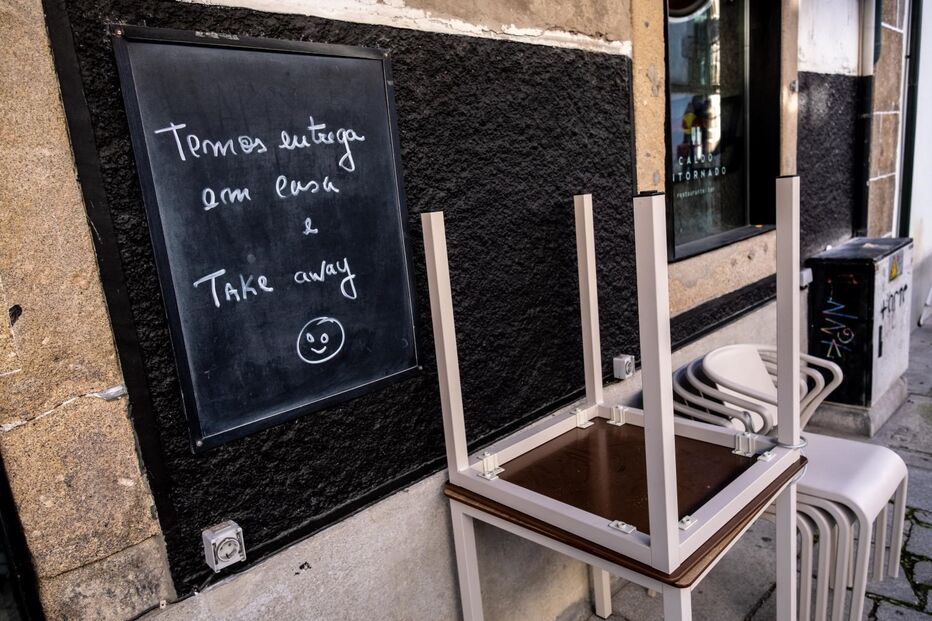 Temos entrega
em casa
e
Take away
CALDO
restaurante bar